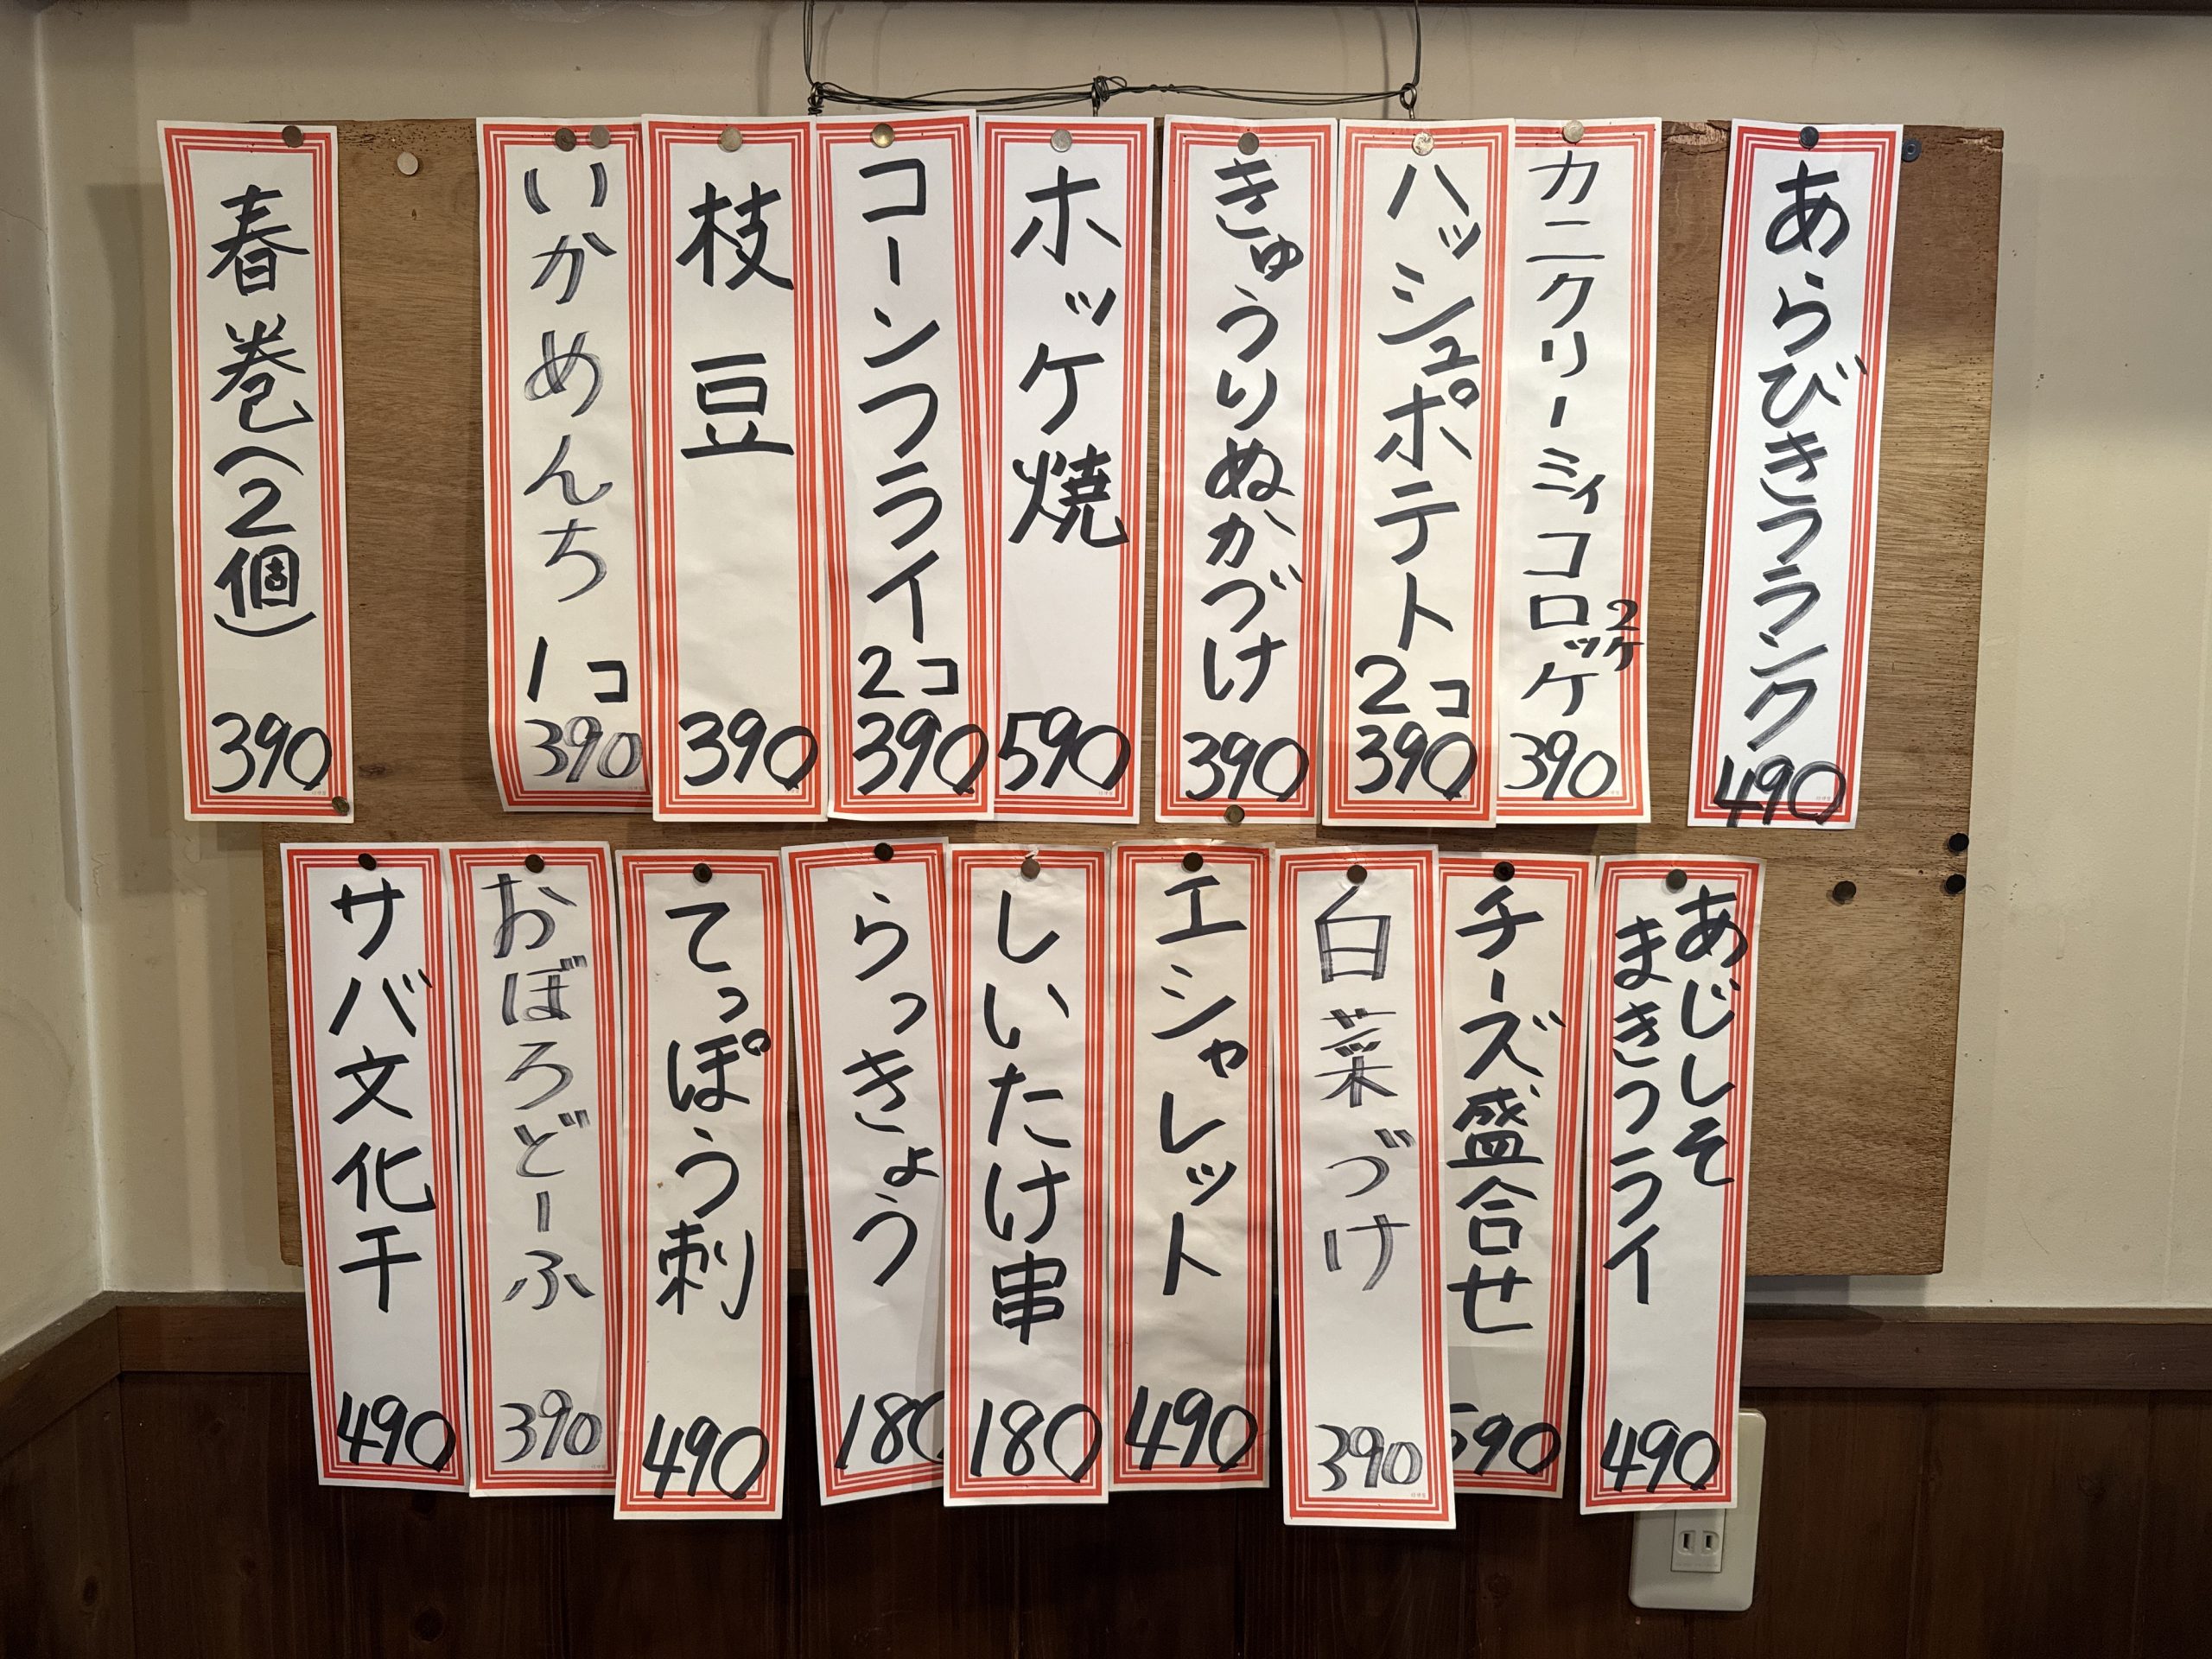 あらびきフランク
490
カニクリーミィコロッケ
2ケ
390
ハッシュポテト
2コ
390
きゅうりぬかづけ
390
ホッケ焼
590
コーンフライ
2コ
390
枝豆
390
いかめんち
1コ
390
春巻(2個)
390
あじしそ
まきフライ
490
チーズ盛合せ
590
白菜づけ
390
エシャレット
490
しいたけ串
180
らっきょう
180
てっぽう刺
490
おぼろどーふ
390
サバ文化干
490